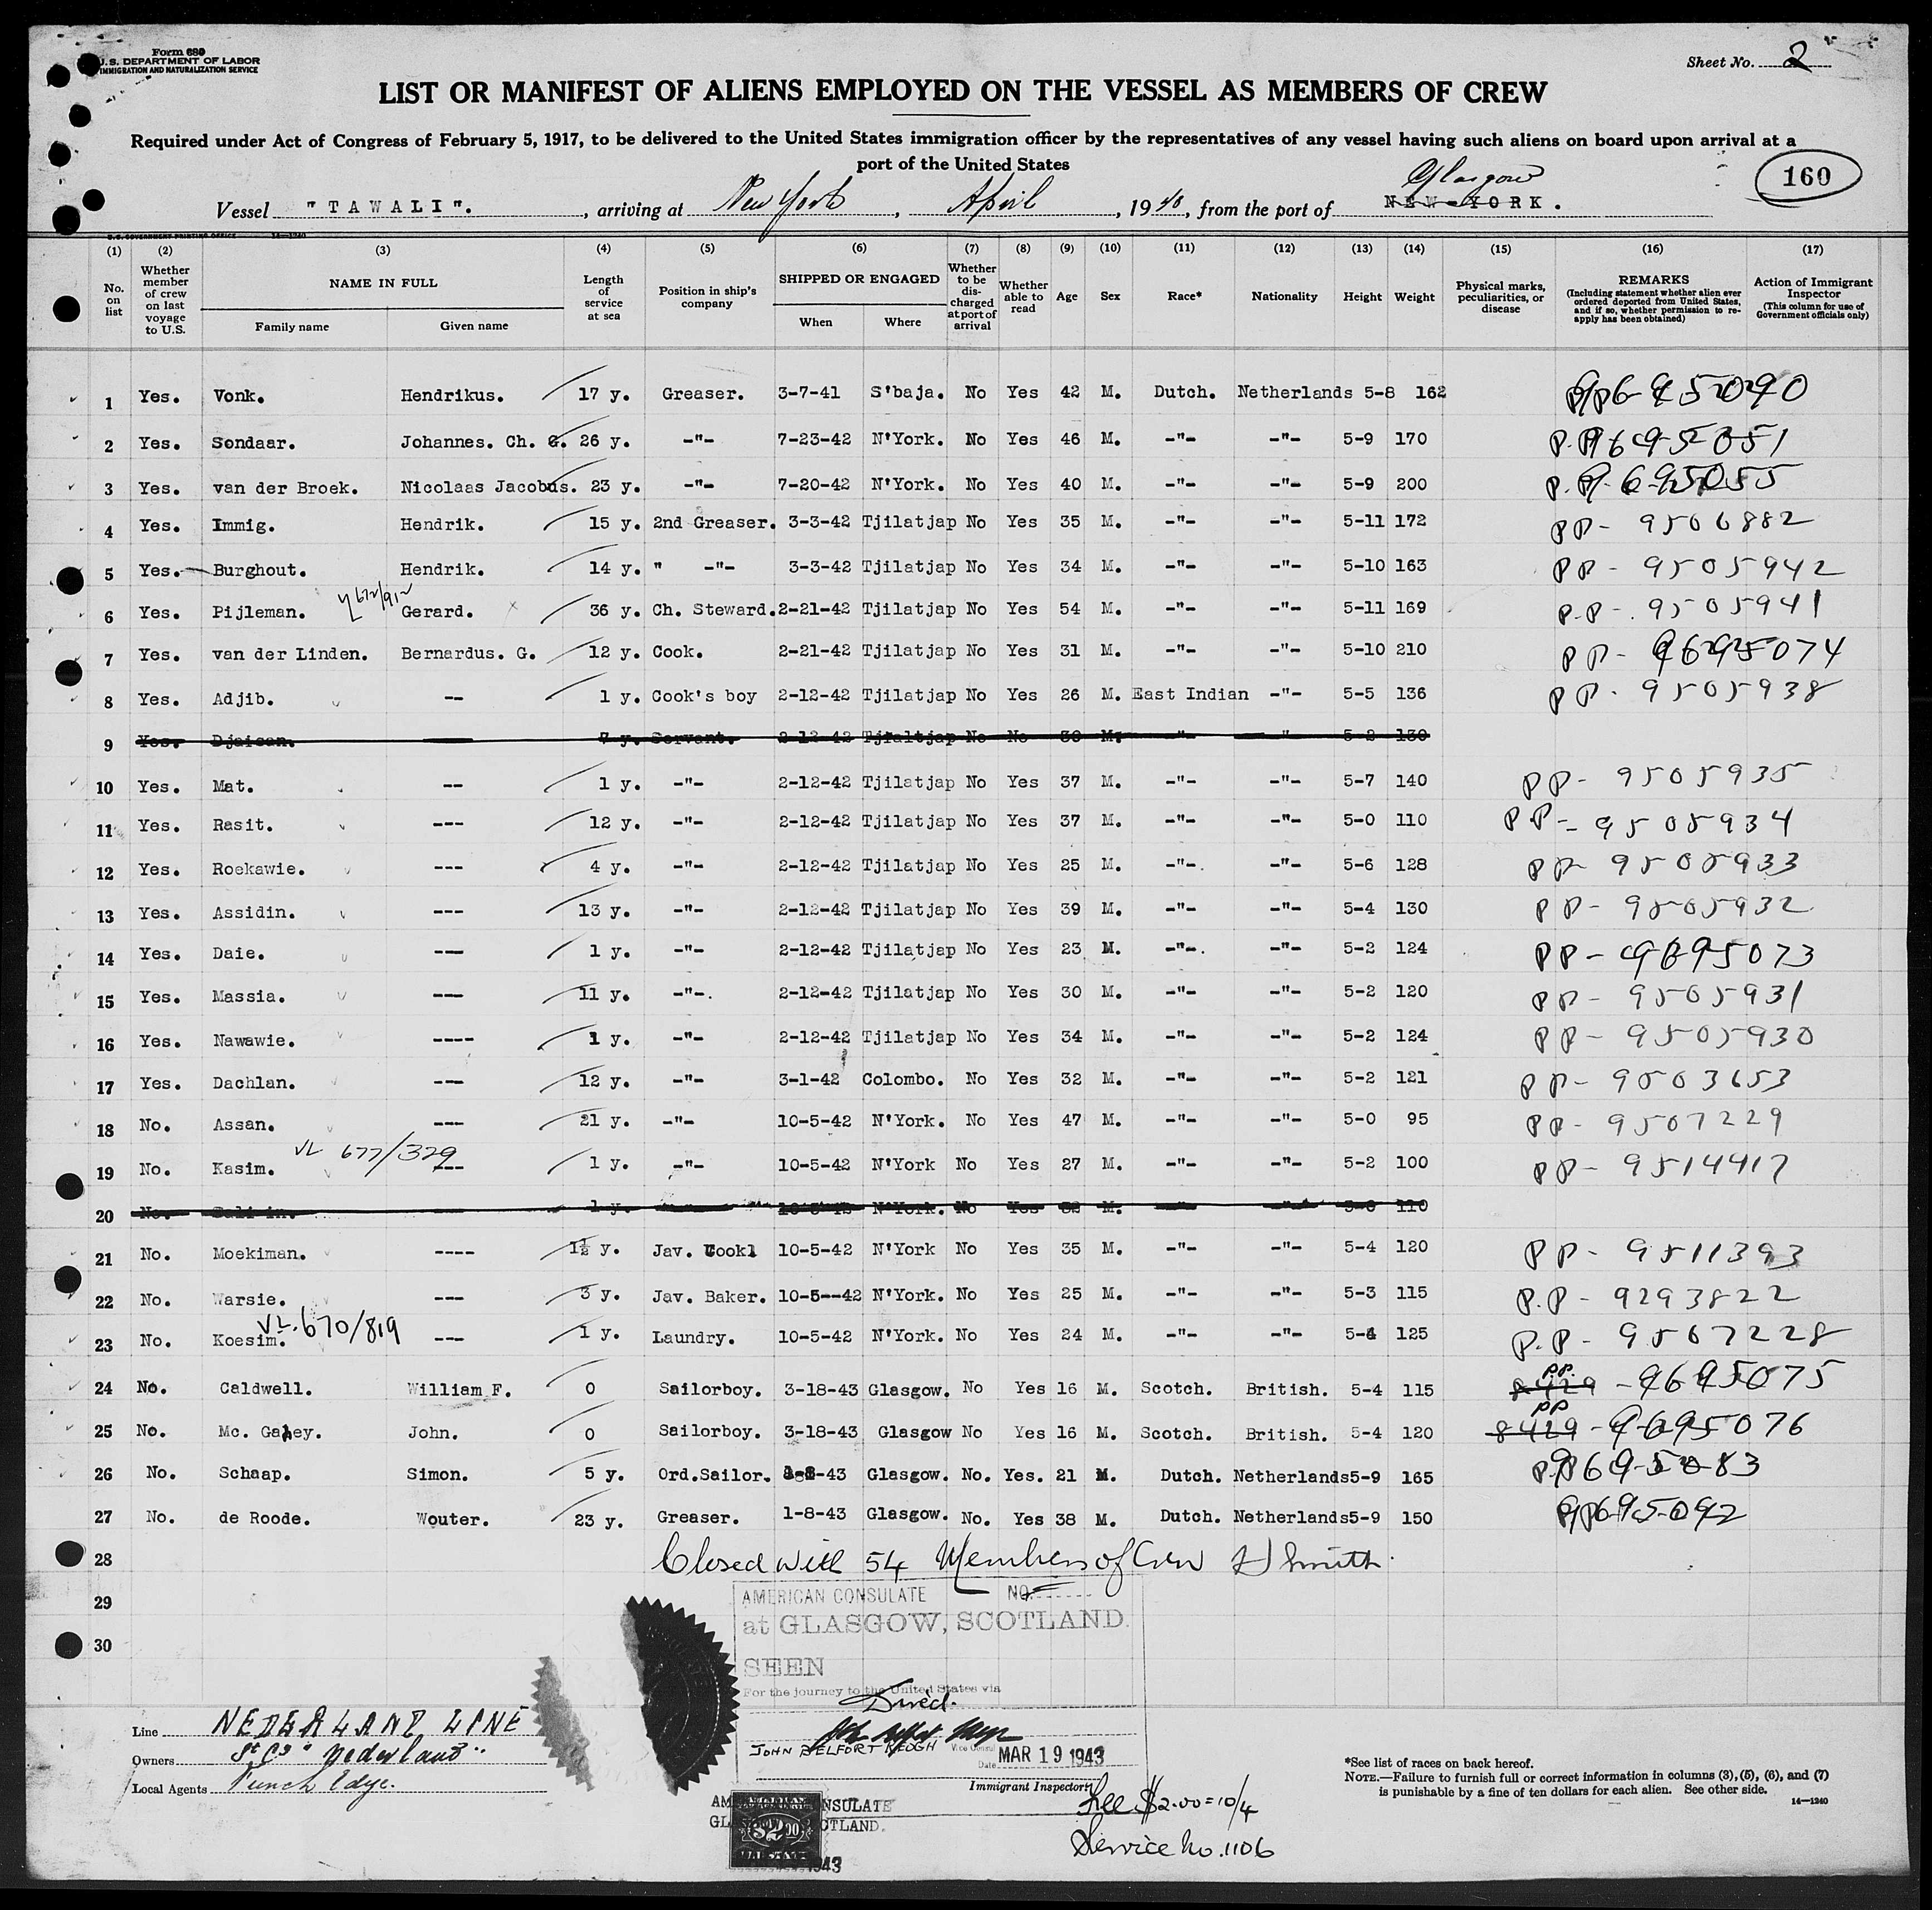 Form 680
U.S. DEPARTMENT OF LABOR
IMMIGRATION AND NATURALIZATION SERVICE
Sheet No. 2
LIST OR MANIFEST OF ALIENS EMPLOYED ON THE VESSEL AS MEMBERS OF CREW
Required under Act of Congress of February 5, 1917, to be delivered to the United States immigration officer by the representatives of any vessel having such aliens on board upon arrival at a
port of the United States
160
Glasgow
Vessel "TAWALI". , arriving at New York , April , 19 40, from the port of NEW YORK.
U.S. GOVERNMENT PRINTING OFFICE 14—1240
(1) (2) (3) (4) (5) (6) (7) (8) (9) (10) (11) (12) (13) (14) (15) (16) (17)
No. on list
Whether member of crew on last voyage to U.S.
NAME IN FULL
Family name Given name
Length of service at sea
Position in ship's company
SHIPPED OR ENGAGED
When Where
Whether to be discharged at port of arrival
Whether able to read
Age
Sex
Race*
Nationality
Height
Weight
Physical marks, peculiarities, or disease
REMARKS
(Including statement whether alien ever ordered deported from United States, and if so, whether permission to reapply has been obtained)
Action of Immigrant Inspector
(This column for use of Government officials only)
1 Yes. Vonk. Hendrikus. 17 y. Greaser. 3-7-41 S'baja. No Yes 42 M. Dutch. Netherlands 5-8 162
2 Yes. Sondaar. Johannes. Ch. G. 26 y. -"- 7-23-42 N'York. No Yes 46 M. -"- -"- 5-9 170 P.P 9695051
3 Yes. van der Broek. Nicolaas Jacobus. 23 y. -"- 7-20-42 N'York. No Yes 40 M. -"- -"- 5-9 200 P.P. 9695055
4 Yes. Immig. Hendrik. 15 y. 2nd Greaser. 3-3-42 Tjilatjap No Yes 35 M. -"- -"- 5-11 172 PP- 9506882
5 Yes. Burghout. Hendrik. 14 y. " -"- 3-3-42 Tjilatjap No Yes 34 M. -"- -"- 5-10 163 PP - 9505942
6 Yes. Pijleman. VL 672/912 Gerard. 36 y. Ch. Steward. 2-21-42 Tjilatjap No Yes 54 M. -"- -"- 5-11 169 P.P- 9505941
7 Yes. van der Linden. Bernardus. G. 12 y. Cook. 2-21-42 Tjilatjap No Yes 31 M. -"- -"- 5-10 210 PP- 9695074
8 Yes. Adjib. -- 1 y. Cook's boy 2-12-42 Tjilatjap No Yes 26 M. East Indian -"- 5-5 136 PP- 9505938
9 Yes. Djaisan. 7 y. Servant. 2-12-42 Tjialtjap No No 30 M. -"- -"- 5-2 130
10 Yes. Mat. -- 1 y. -"- 2-12-42 Tjilatjap No Yes 37 M. -"- -"- 5-7 140 PP- 9505935
11 Yes. Rasit. --- 12 y. -"- 2-12-42 Tjilatjap No Yes 37 M. -"- -"- 5-0 110 PP- 9505934
12 Yes. Roekawie. --- 4 y. -"- 2-12-42 Tjilatjap No Yes 25 M. -"-. -"- 5-6 128 PP- 9505933
13 Yes. Assidin. --- 13 y. -"- 2-12-42 Tjilatjap No Yes 39 M. -"- -"- 5-4 130 PP- 9505932
14 Yes. Daie. --- 1 y. -"- 2-12-42 Tjilatjap No Yes 23 M. -"-. -"- 5-2 124 PP- 9695073
15 Yes. Massia. --- 11 y. -"-. 2-12-42 Tjilatjap No Yes 30 M. -"- -"- 5-2 120 PP- 9505931
16 Yes. Nawawie. ---- 1 y. -"- 2-12-42 Tjilatjap No Yes 34 M. -"- -"- 5-2 124 PP- 9505930
17 Yes. Dachlan. --- 12 y. -"- 3-1-42 Colombo. No Yes 32 M. -"- -"- 5-2 121 PP- 9503653
18 No. Assan. --- 21 y. -"- 10-5-42 N'York. No Yes 47 M. -"- -"- 5-0 95 PP- 9507229
19 No. Kasim. VL 677/329 --- 1 y. -"- 10-5-42 N'York No Yes 27 M. -"- -"- 5-2 100 PP- 9514417
20 No. 1 y. 10-5-42 N'York. No Yes M. -"- -"- 110
21 No. Moekiman. ---- 1½ y. Jav. Cook1 10-5-42 N'York No Yes 35 M. -"- -"- 5-4 120 PP- 9511393
22 No. Warsie. --- 3 y. Jav. Baker. 10-5--42 N'York. No Yes 25 M. -"- -"- 5-3 115 P.P- 9293822
23 No. Koesim. VL. 670/819 --- 1 y. Laundry. 10-5-42 N'York. No Yes 24 M. -"- -"- 5-4 125 P.P- 9507228
24 No. Caldwell. William F. 0 Sailorboy. 3-18-43 Glasgow. No Yes 16 M. Scotch. British. 5-4 115 8429 PP. -9695075
25 No. Mc. Gahey. John. 0 Sailorboy. 3-18-43 Glasgow No Yes 16 M. Scotch. British. 5-4 120 8429 PP -9695076
26 No. Schaap. Simon. 5 y. Ord.Sailor. 1-8-43 Glasgow. No. Yes. 21 M. Dutch. Netherlands 5-9 165
27 No. de Roode. Wouter. 23 y. Greaser. 1-8-43 Glasgow. No. Yes 38 M. Dutch. Netherlands 5-9 150
28 Closed with 54 Members of Crew H Smith.
29
30
AMERICAN CONSULATE NO.
at GLASGOW, SCOTLAND.
SEEN
For the journey to the United States via
Direct.
JOHN BELFORT KEOGH Vice Consul
Date MAR 19 1943
Immigrant Inspector
Line NEDERLAND LINE
Owners St Cy "Nederland"
Local Agents Funch Edye.
AMERICAN CONSULATE
GLASGOW, SCOTLAND.
$2.00
1943
Fee $2.00 = 10/4
Service No. 1106
*See list of races on back hereof.
NOTE.—Failure to furnish full or correct information in columns (3), (5), (6), and (7)
is punishable by a fine of ten dollars for each alien. See other side.
14—1240